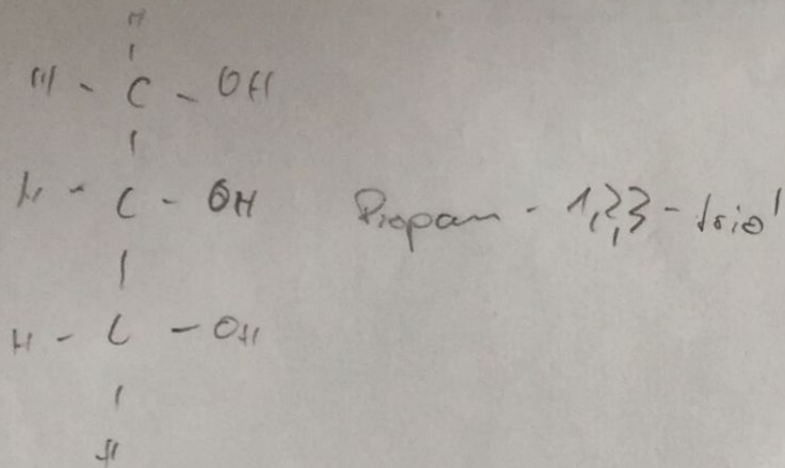 H
H - C - OH
H - C - OH Propan - 1,2,3 - triol
H - C - OH
H